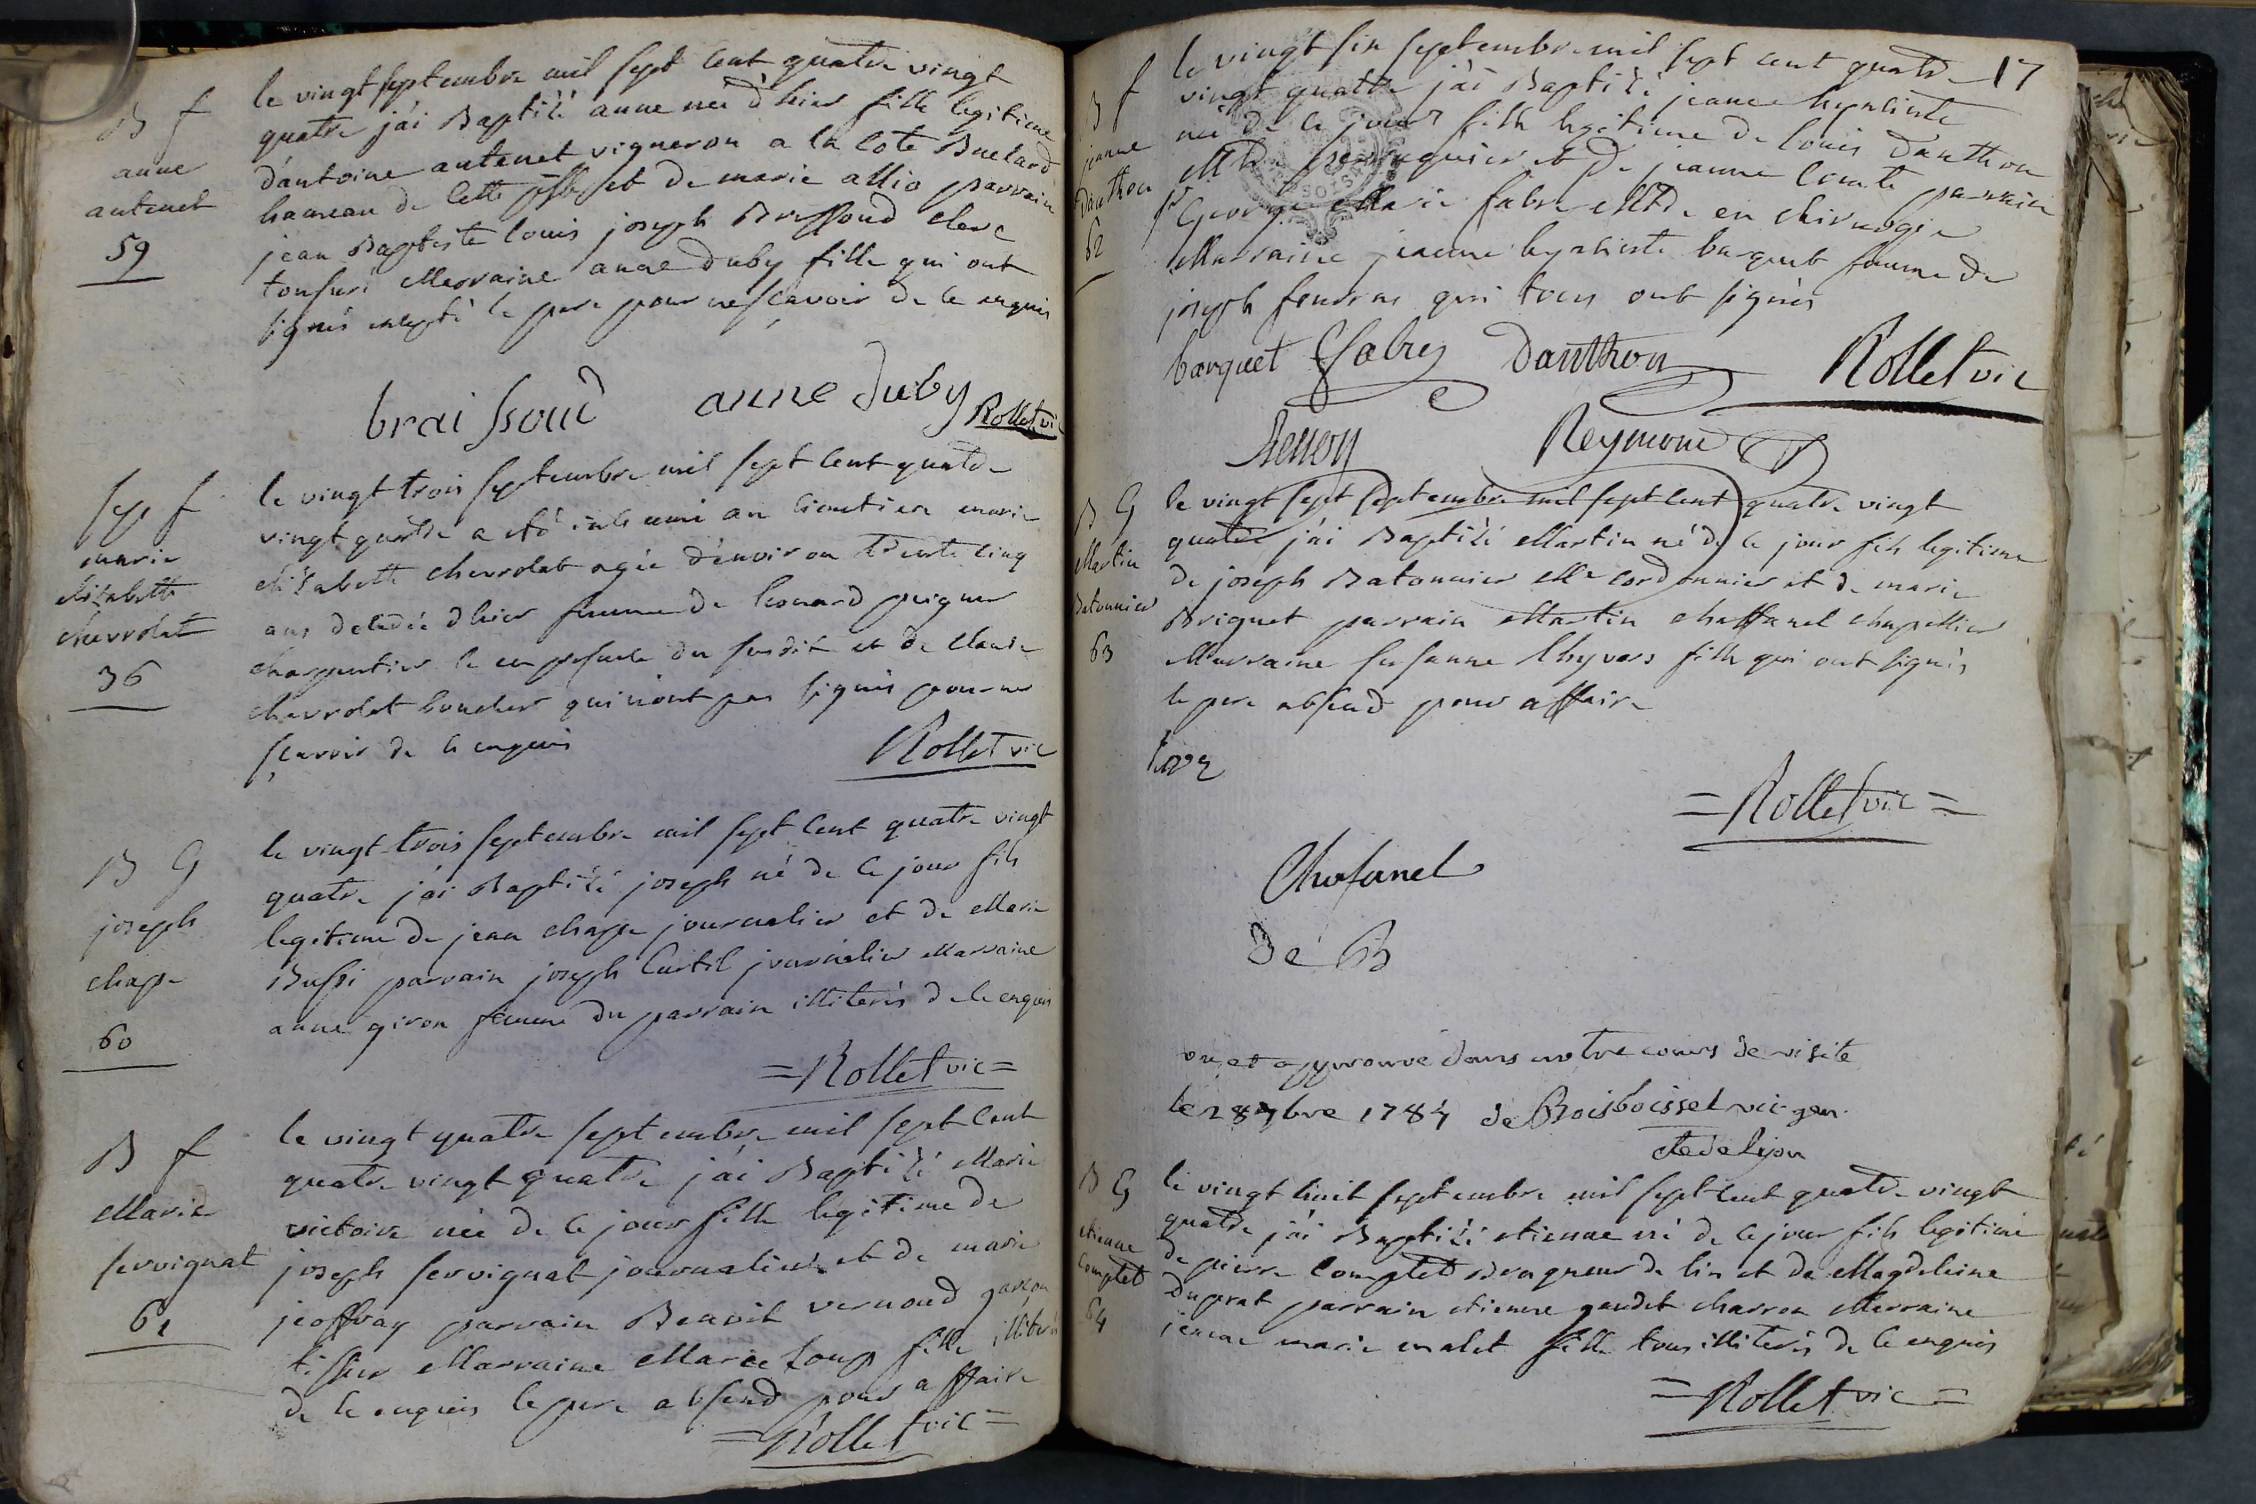 B f
anne
antenet
59
le vingt septembre mil sept cent quatre vingt
quatre j'ai Baptisé anne née d'hier fille legitime
d'antoine antenet vigneron a la cote Buclard
hameau de cette psse et de marie allio parrain
jean Baptiste louis joseph Braissoud clerc
tonsuré Marraine anne duby fille qui ont
signés excepté le pere pour ne sçavoir de ce enquis
braissoud anne duby Rollet vic
Sep f
marie
elisabette
chevrolat
36
le vingt trois septembre mil sept cent quatre
vingt quatre a eté inhumé au cimetiere marie
elisabette chevrolat agée d'environ trente cinq
ans deledée d'hier femme de leonard peigneur
charpentier le en presence du susdit et de claude
chevrolat boucher qui n'ont pas signés pour ne
sçavoir de ce enquis
Rollet vic
B G
joseph
chape
60
le vingt trois septembre mil sept cent quatre vingt
quatre j'ai Baptisé joseph né de ce jour fils
legitime de jean chape journalier et de Marie
Bussi parrain joseph Curtil journalier Marraine
anne giron femme du parrain illiterés de ce enquis
=Rollet vic=
B f
Marie
servignat
61
le vingt quatre septembre mil sept cent
quatre vingt quatre j'ai Baptisé Marie
victoire née de ce jour fille legitime de
joseph servignat journalier et de marie
jeoffray parrain Benoit vernoud garçon
tissier Marraine Marie Loup fille illiterés
de ce enquis le pere absend pour affaire
=Rollet vic=
17
B f
jeanne
Danthon
62
le vingt six septembre mil sept cent quatre
vingt quatre j'ai Baptisé jeanne hyacinte
née de ce jour fille legitime de louis Danthon
Mtre perruquier et de jeanne Comte parrain
sr George Marie fabre Mtre en chirurgie
Marraine jeanne hyacinte barquet femme de
joseph qui tous ont signés
barquet fabre Danthon Rollet vic
Reymond
B G
Martin
Batonnier
63
le vingt sept septembre mil sept cent quatre vingt
quatre j'ai Baptisé Martin né de ce jour fils legitime
de joseph Batonnier Me cordonnier et de marie
Briquet parrain Martin chaffanel chapellier
Marraine susanne Thyvers fille qui ont signés
le pere absend pour affaire
=Rollet vic=
Chafanel
de B
vu et approuvé dans notre cours de visite
le 28 7bre 1784 de Boisboissel vic gen.
Cte de Lyon
B G
etienne
Complet
64
le vingt huit septembre mil sept cent quatre vingt
quatre j'ai Baptisé etienne né de ce jour fils legitime
de pierre Complet peigneur de lin et de Magdeleine
Duprat parrain etienne gaudet charron Marraine
jeanne marie malet fille tous illiterés de ce enquis
=Rollet vic=